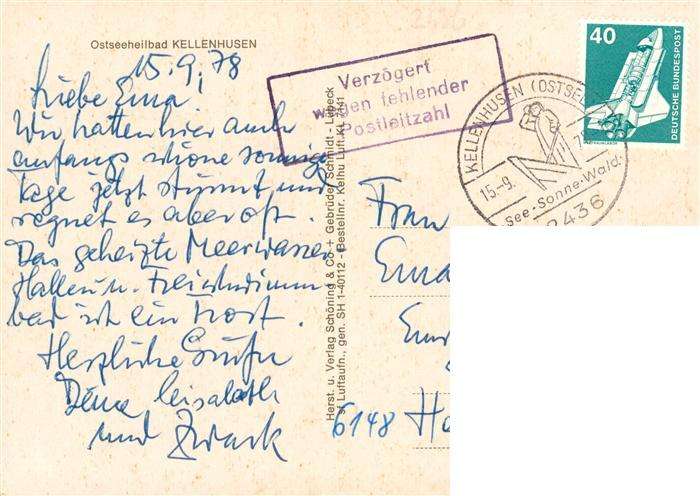 Ostseeheilbad KELLENHUSEN
15.9.78
Liebe Erna!
Wir hatten hier auch
anfangs schöne sonnige
Tage jetzt stürmt und
regnet es aber oft.
Das geheizte Meerwasser
Hallen u. Freischwimm
bad ist ein Trost.
Herzliche Grüße
Deine
und
Herst. u. Verlag Schöning & Co + Gebrüder Schmidt - Lübeck
Luftaufn., gen. SH 1-40112 - Bestellnr. Kelhu Luft KL 7041
Verzögert
wegen fehlender
Postleitzahl
KELLENHUSEN (OSTSEE
15.-9.
See·Sonne·Wald·
2436
40
DEUTSCHE BUNDESPOST
Frau
6148